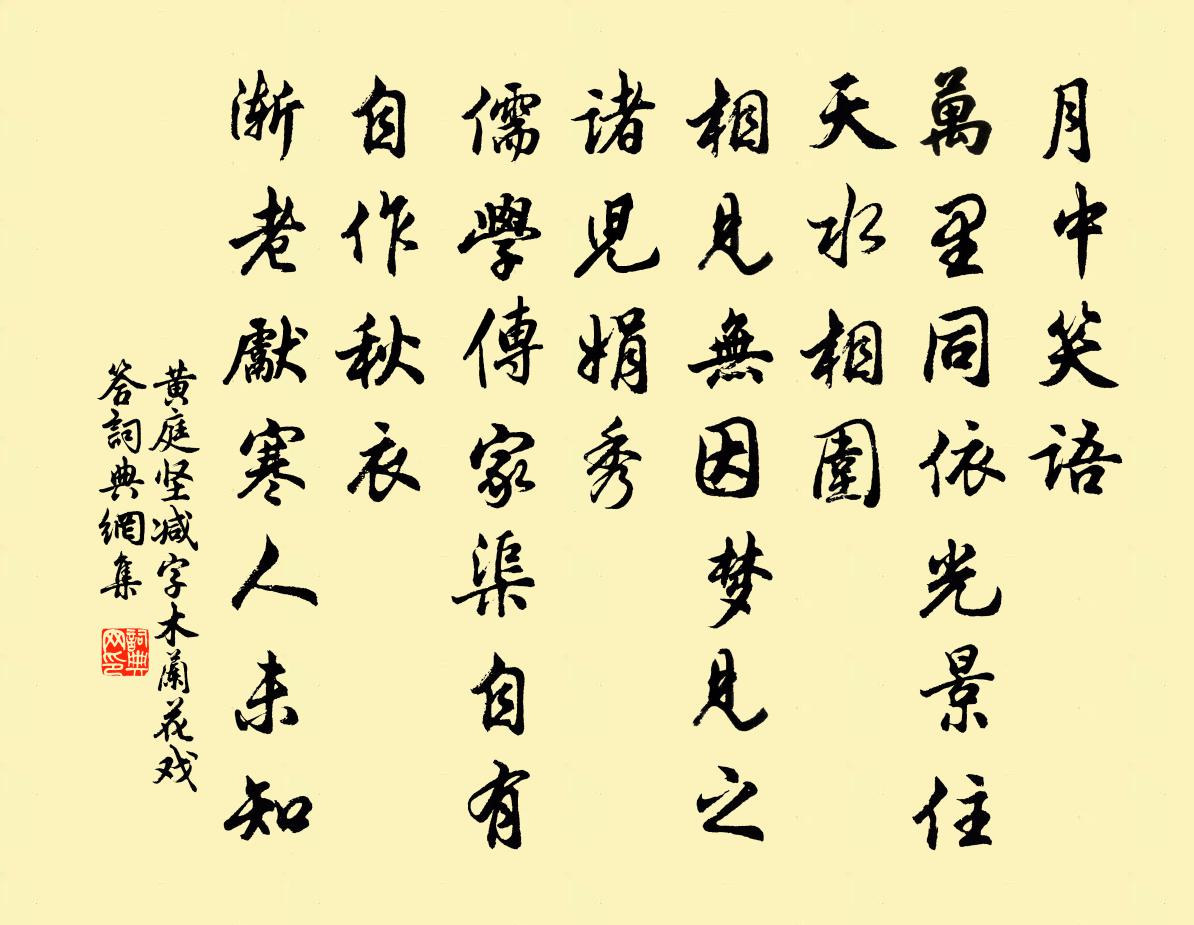 月中笑語
萬里同依光景住
天水相圍
相見無因夢見之
諸児娟秀
儒學傳家渠自有
自作秋衣
漸老獻寒人未知
黄庭坚减字木蘭花戏
答詞典網集
詞典
网印